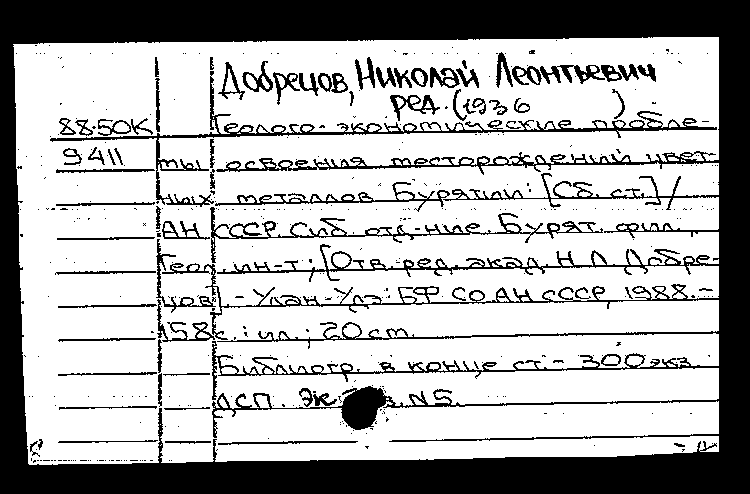 Добрецов, Николай Леонтьевич
ред. (1936 )
88-50К Геолого-экономические пробле-
9411 мы освоения месторождений цвет-
ных металлов Бурятии: [Сб. ст.] /
АН СССР. Сиб. отд-ние. Бурят. фил.,
Геол. ин-т; [Отв. ред. акад. Н Л Добре-
цов]. - Улан-Удэ: БФ СО АН СССР, 1988. -
158 с. : ил.; 20 cm.
Библиогр. в конце ст. - 300 экз.
ДСП. Эк з. N5.